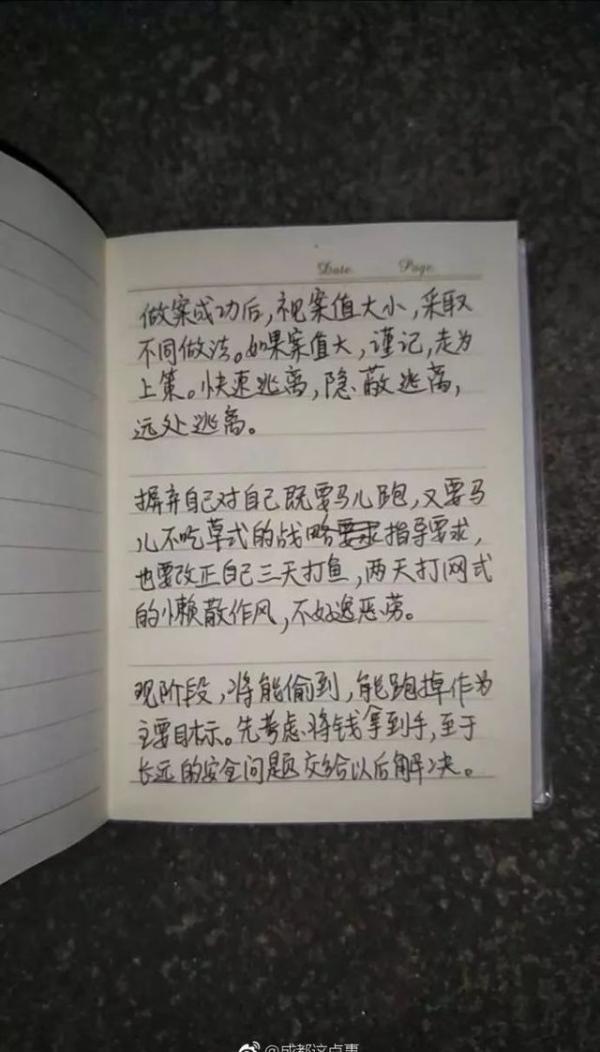 Date Page
做案成功后，视案值大小，采取
不同做法。如果案值大，谨记，走为
上策。快速逃离，隐蔽逃离，
远处逃离。
摒弃自己对自己既要马儿跑，又要马
儿不吃草式的战略要求指导要求，
也要改正自己三天打鱼，两天打网式
的懒散作风，不好逸恶劳。
现阶段，将能偷到，能跑掉作为
主要目标。先考虑将钱拿到手，至于
长远的安全问题交给以后解决。
@成都这点事